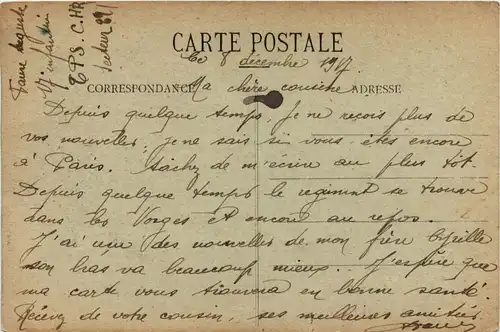 Faure Auguste
17e infanterie
E.P.S. C.H.R.
Secteur 89
CARTE POSTALE
Le 8 décembre 1917
CORRESPONDANCE
Ma chère cousine
ADRESSE
Depuis quelque temps, Je ne reçois plus de
vos nouvelles, je ne sais si vous êtes encore
à Paris. Tachez de m'écrire au plus tôt.
Depuis quelque temps le regiment se trouve
dans les Vosges et encore au repos.
J'ai reçu des nouvelles de mon frère
son bras va beaucoup mieux. J'espère que
ma carte vous trouvera en bonne santé.
Recevez de votre cousin, ses meilleures amitiés
Faure